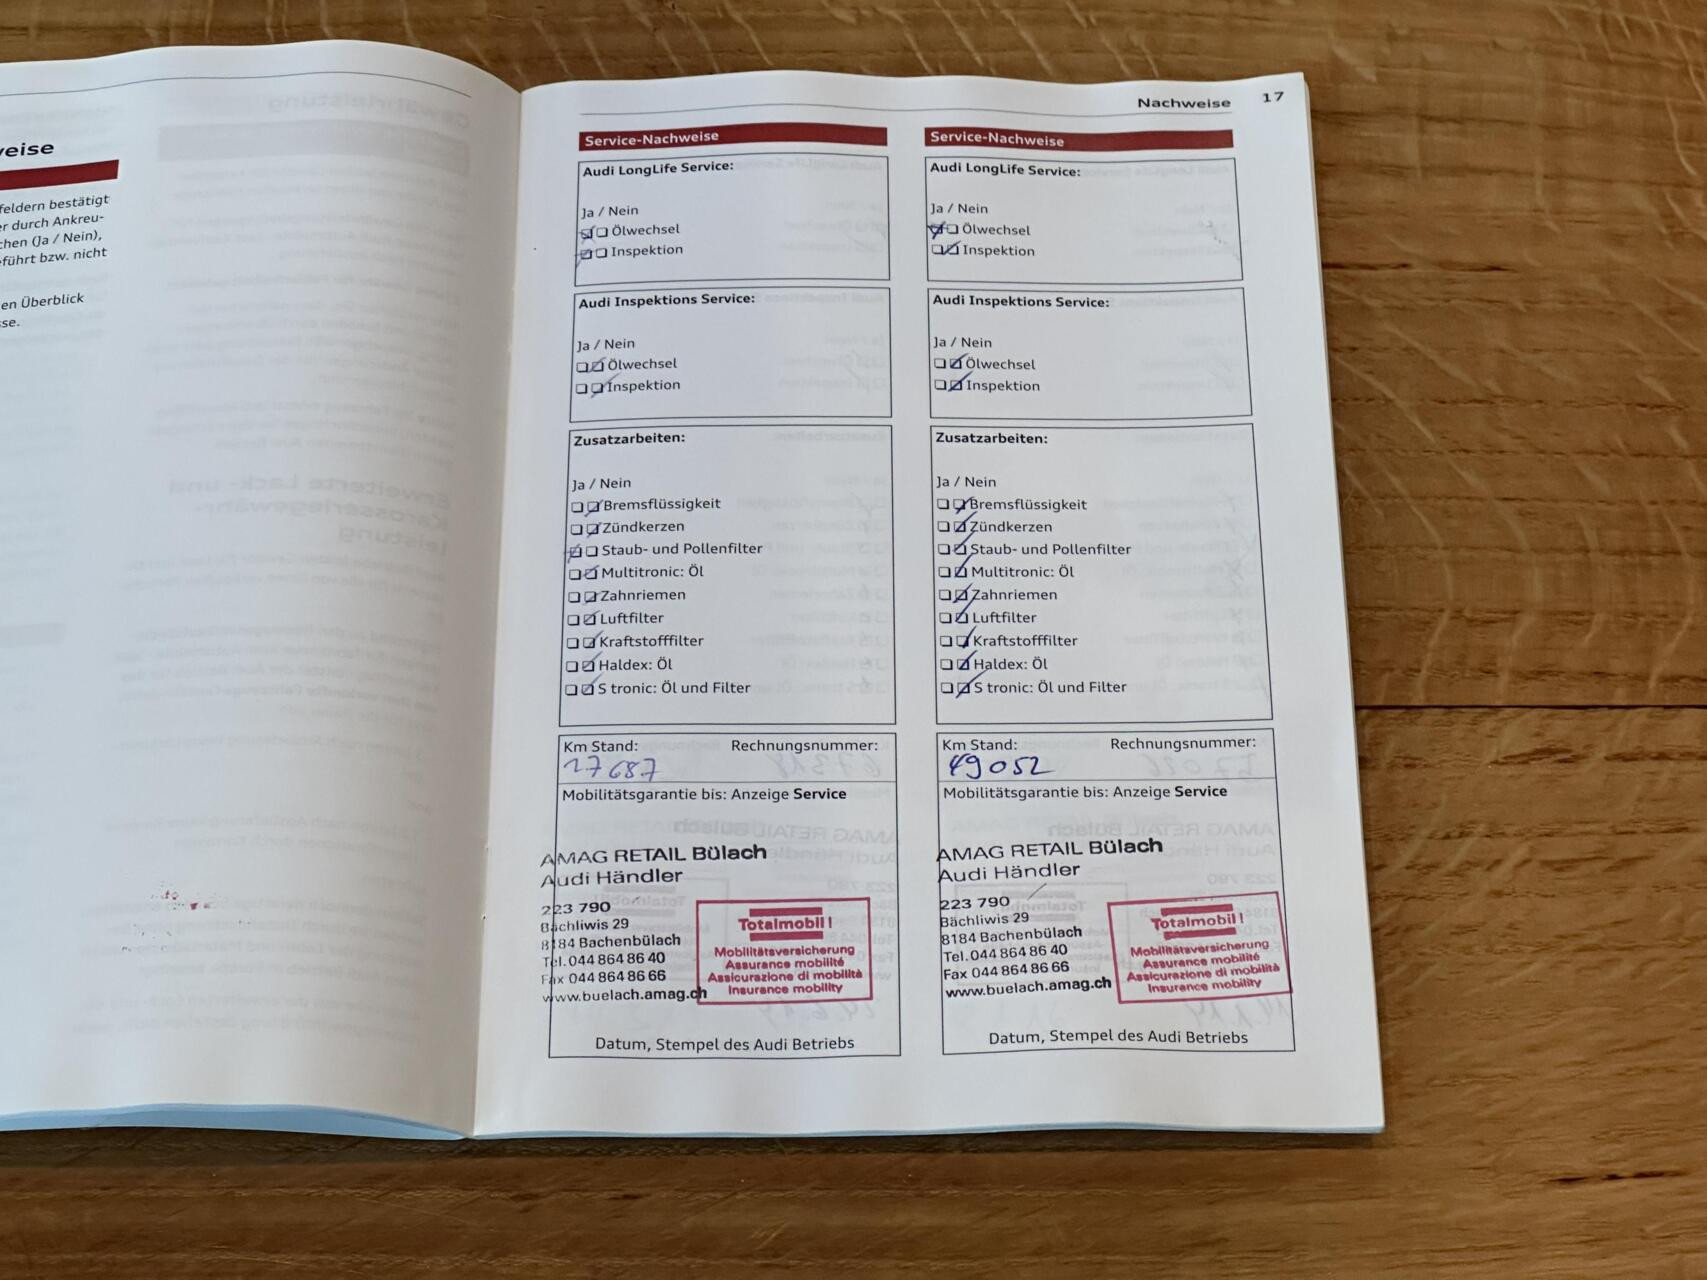 eise
feldern bestätigt
er durch Ankreu-
chen (Ja / Nein),
führt bzw. nicht
en Überblick
sse.
Nachweise 17
Service-Nachweise
Audi LongLife Service:
Ja / Nein
Ölwechsel
Inspektion
Audi Inspektions Service:
Ja / Nein
Ölwechsel
Inspektion
Zusatzarbeiten:
Ja / Nein
Bremsflüssigkeit
Zündkerzen
Staub- und Pollenfilter
Multitronic: Öl
Zahnriemen
Luftfilter
Kraftstofffilter
Haldex: Öl
S tronic: Öl und Filter
Km Stand: Rechnungsnummer:
27687
Mobilitätsgarantie bis: Anzeige Service
AMAG RETAIL Bülach
Audi Händler
223 790
Bächliwis 29
8184 Bachenbülach
Tel. 044 864 86 40
Fax 044 864 86 66
www.buelach.amag.ch
Totalmobil!
Mobilitätsversicherung
Assurance mobilité
Assicurazione di mobilità
Insurance mobility
Datum, Stempel des Audi Betriebs
Service-Nachweise
Audi LongLife Service:
Ja / Nein
Ölwechsel
Inspektion
Audi Inspektions Service:
Ja / Nein
Ölwechsel
Inspektion
Zusatzarbeiten:
Ja / Nein
Bremsflüssigkeit
Zündkerzen
Staub- und Pollenfilter
Multitronic: Öl
Zahnriemen
Luftfilter
Kraftstofffilter
Haldex: Öl
S tronic: Öl und Filter
Km Stand: Rechnungsnummer:
49052
Mobilitätsgarantie bis: Anzeige Service
AMAG RETAIL Bülach
Audi Händler
223 790
Bächliwis 29
8184 Bachenbülach
Tel. 044 864 86 40
Fax 044 864 86 66
www.buelach.amag.ch
Totalmobil!
Mobilitätsversicherung
Assurance mobilité
Assicurazione di mobilità
Insurance mobility
Datum, Stempel des Audi Betriebs